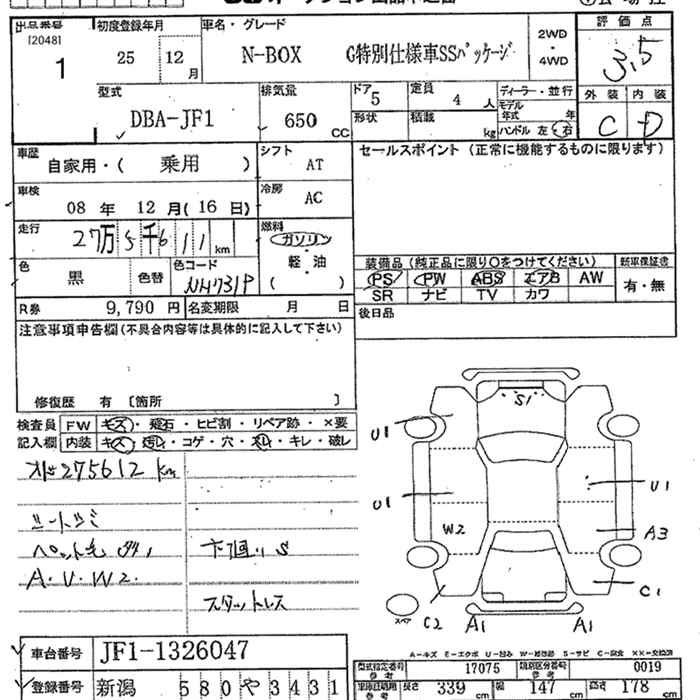 出品番号 初度登録年月 車名・グレード 評価点
[2048]
1 25 12月 N-BOX G特別仕様車SSパッケージ 2WD・4WD 3.5
型式 排気量 ドア 定員 ディーラー・並行 外装 内装
DBA-JF1 650 CC 5 4人 モデル年式 年 C D
形状 積載 kg ハンドル 左・右
車歴 自家用・( 乗用 ) シフト AT セールスポイント (正常に機能するものに限ります)
車検 08年 12月 (16日) 冷房 AC
走行 27万5千611km 燃料 ガソリン・軽油 ( )
装備品 (純正品に限り○をつけてください) 新車保証書
色 黒 色替 色コード NH731P PS PW ABS エアB AW 有・無
SR ナビ TV カワ
R券 9,790円 名変期限 月 日 後日品
注意事項申告欄(不具合内容等は具体的に記入して下さい)
修復歴 有 [箇所 ]
検査員 FW キズ・飛石・ヒビ割・リペア跡・×要
記入欄 内装 キズ・汚れ・コゲ・穴・スレ・キレ・破レ
275612 km
ペット毛
下廻りS
A.U.W2
スタットレス
S1
U1
U1
U1
W2
A3
C1
C2
A1
A1
スペア
車台番号 JF1-1326047
登録番号 新潟 580 や 3431
A-キズ E-エクボ U-凹み W-補修跡 S-サビ C-腐食 XX-交換済
型式指定番号 参考 17075 類別区分番号 参考 0019
長さ 339 cm 幅 147 cm 高さ 178 cm